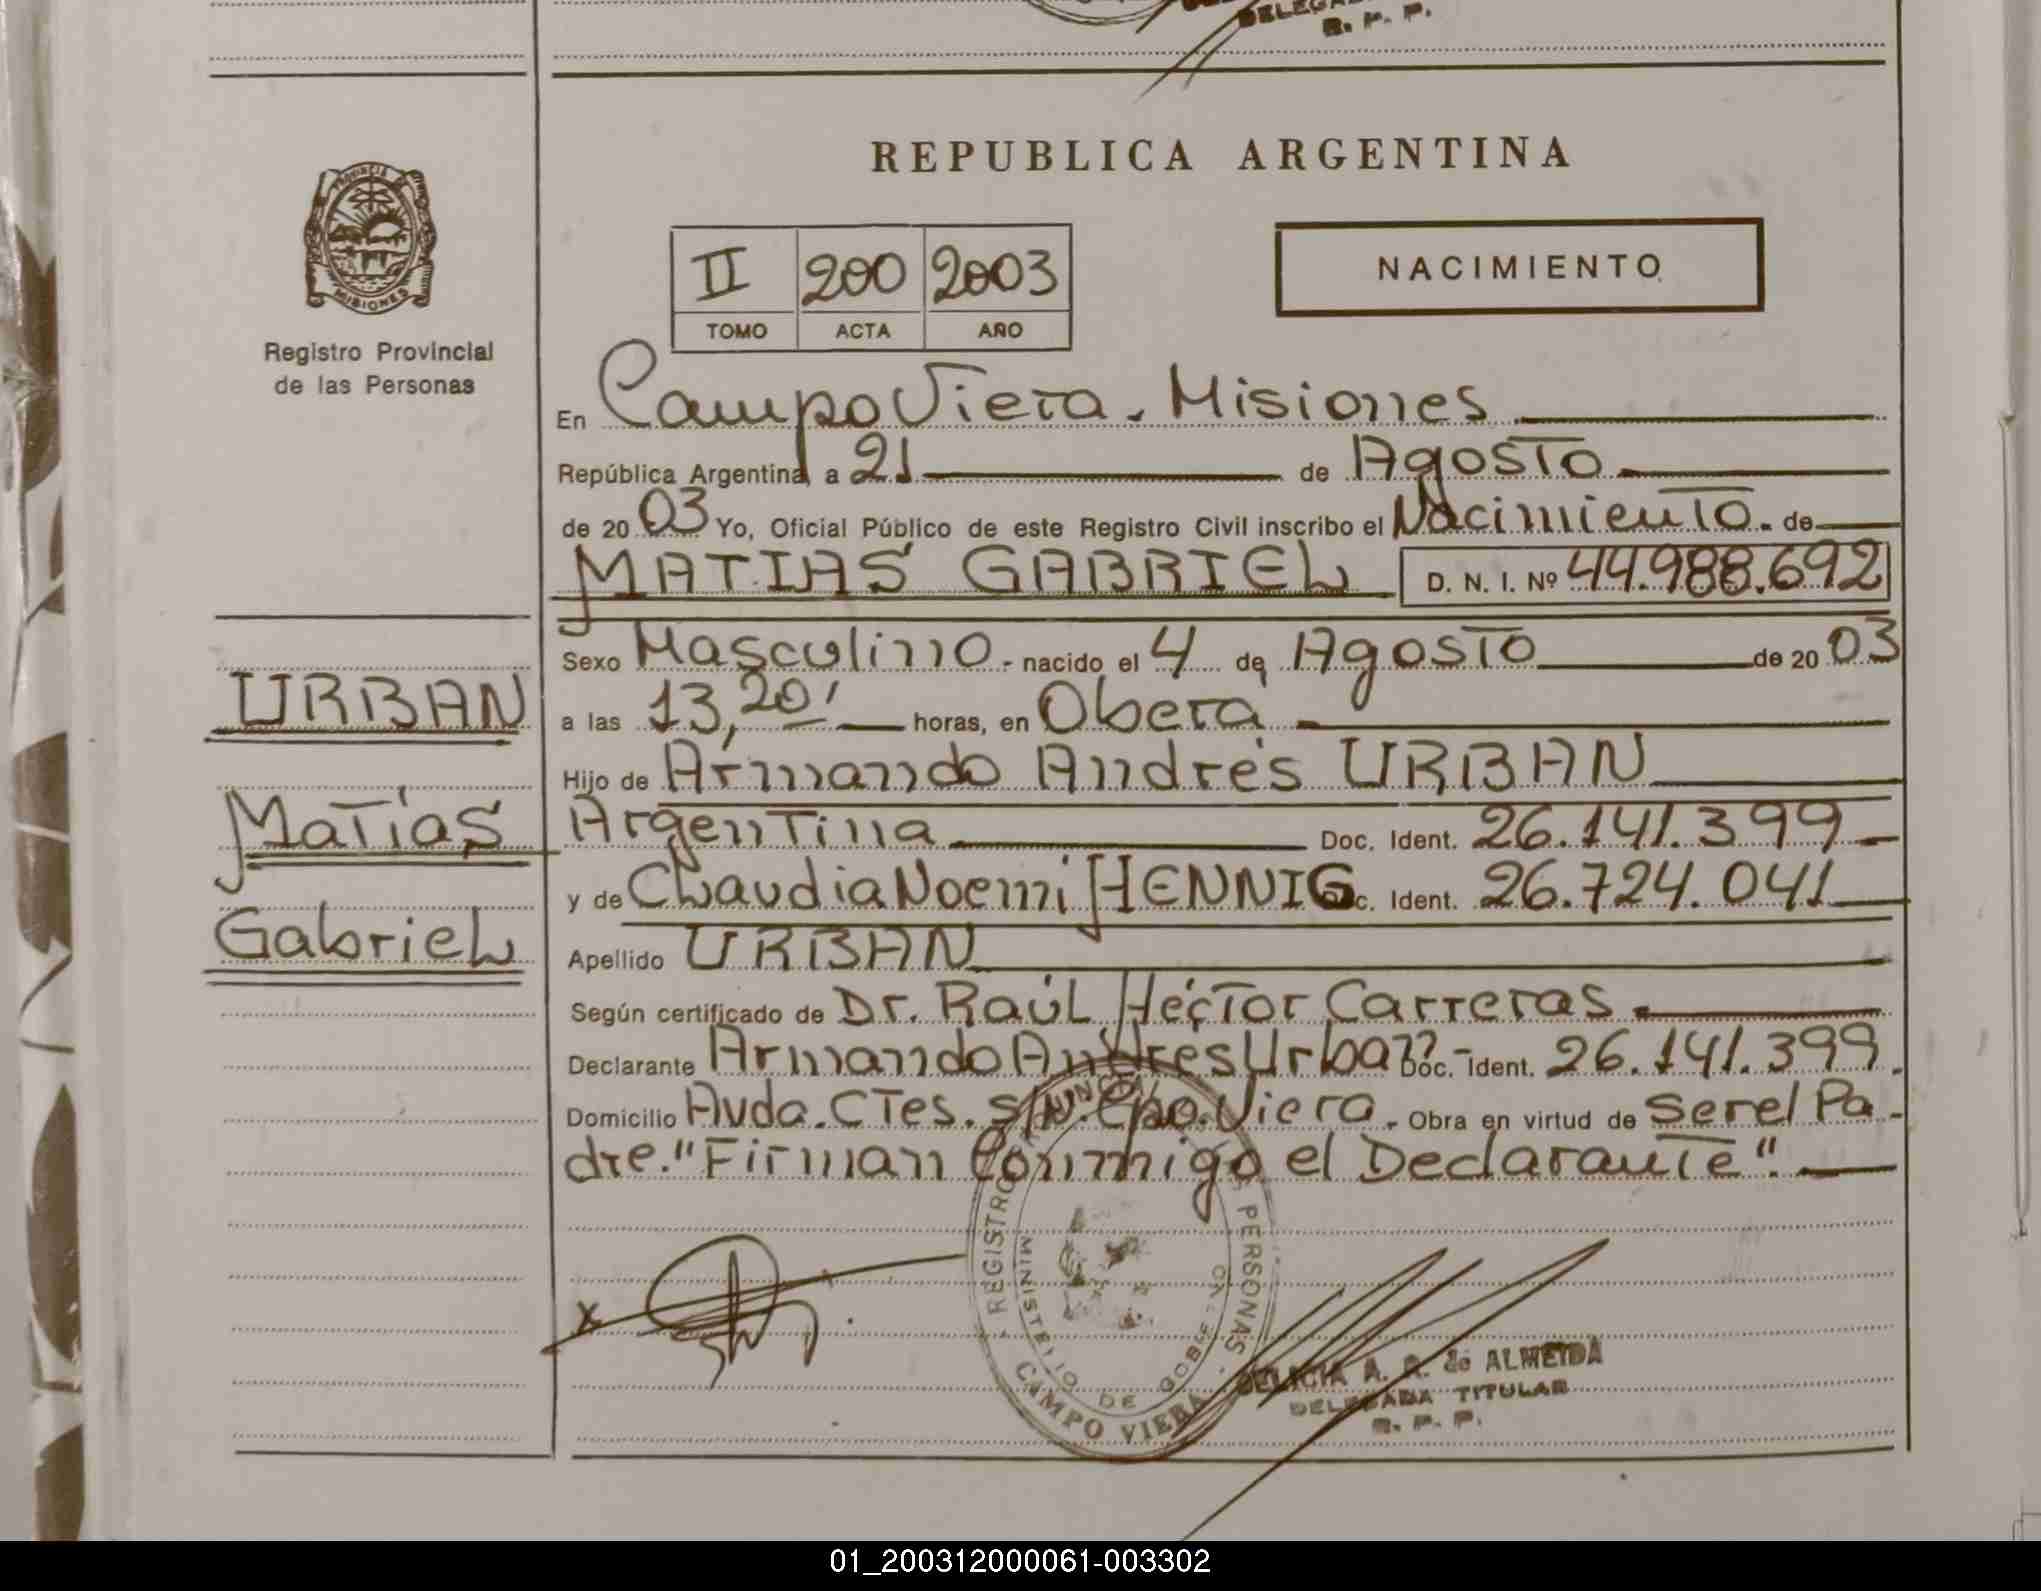 DELEGADA
R. P. P.
REPUBLICA ARGENTINA
PROVINCIA DE
MISIONES
Registro Provincial
de las Personas
II 200 2003
TOMO ACTA AÑO
NACIMIENTO
En Campo Viera. Misiones
República Argentina, a 21 de Agosto
de 2003 Yo, Oficial Público de este Registro Civil inscribo el Nacimiento. de
MATIAS GABRIEL D. N. I. Nº 44.988.692
Sexo Masculino.- nacido el 4 de Agosto de 2003
a las 13,20' horas, en Oberá
Hijo de Armando Andrés URBAN
Argentina Doc. Ident. 26.141.399
y de Claudia Noemi HENNIG Doc. Ident. 26.724.041
Apellido URBAN
Según certificado de Dr. Raúl Héctor Carreras.
Declarante Armando Andres Urban.- Doc. Ident. 26.141.399.
Domicilio Avda. CTes. s/N. Cpo. Viera. Obra en virtud de Ser el Pa-
dre. "Firman Conmigo el Declarante".
URBAN
Matías
Gabriel
X
REGISTRO PROVINCIAL PERSONAS
MINISTERIO DE GOBIERNO
CAMPO VIERA
DELICIA A. R. de ALMEIDA
DELEGADA TITULAR
R. P. P.
01_200312000061-003302